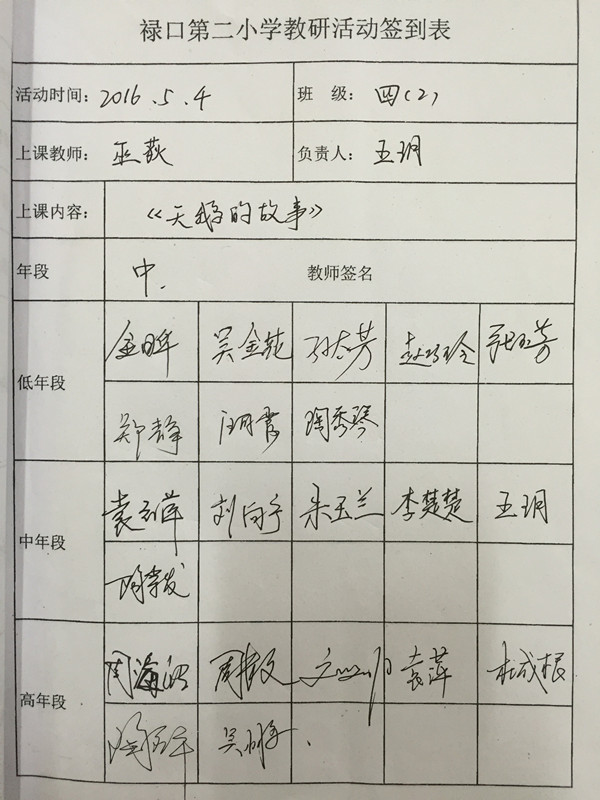 禄口第二小学教研活动签到表
活动时间：2016.5.4 班 级：四(2)
上课教师：巫荻 负责人：王玥
上课内容：《天鹅的故事》
年段 中. 教师签名
低年段 金晖 吴金苑 孙志芳 赵巧玲 张玉芳
郑静 陶秀琴
中年段 袁 刘向宁 朱玉兰 李楚楚 王玥
高年段 周海 周 袁萍 杜成根
吴